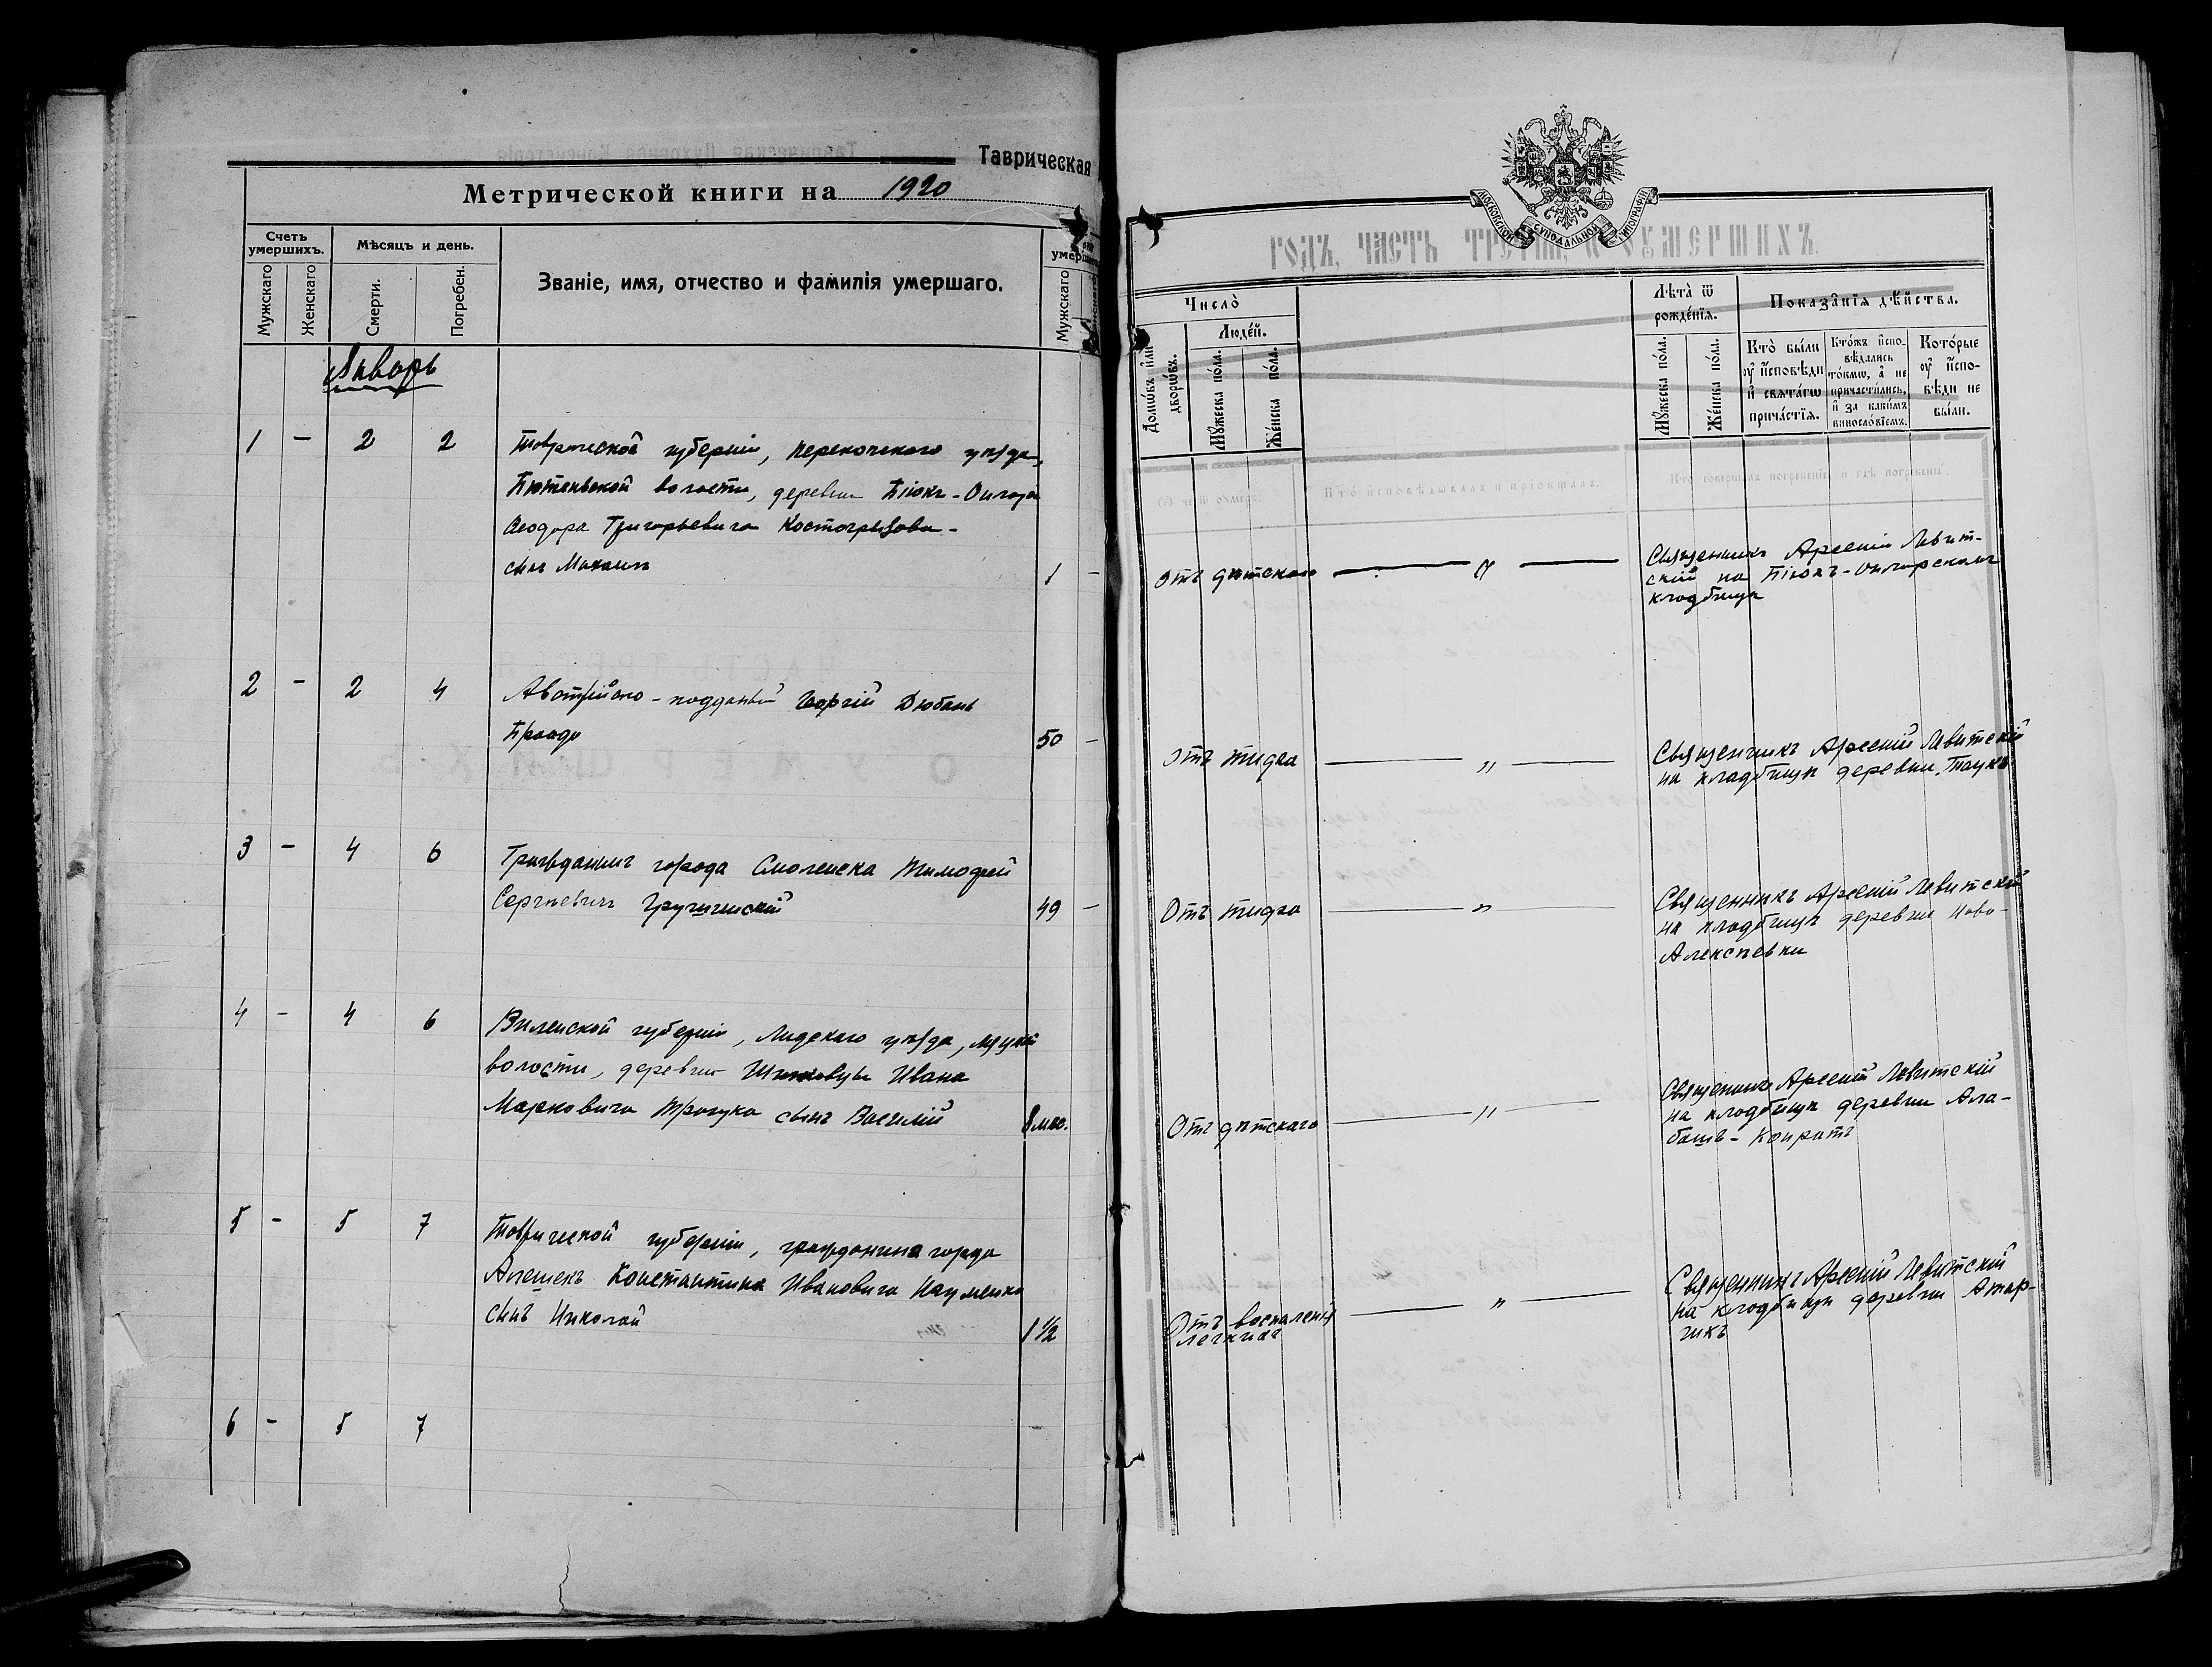 Таврическая
Метрической книги на 1920
Счетъ умершихъ.
Мѣсяцъ и день.
Званіе, имя, отчество и фамилія умершаго.
Мужскаго
Женскаго
Смерти.
Погребен.
Мужскаго
Январь
1 - 2 2 Таврической губерніи, Перекопскаго уѣзда,
волости, деревни Біюкъ-Онларъ
Ѳеодора Григорьевича Костогрызова -
сынъ Михаилъ 1 -
2 - 2 4 Австрійско-подданый Георгій Дюбань
50 -
3 - 4 6 Гражданинъ города Смоленска Тимофей
Сергѣевичъ 49 -
4 - 4 6 Виленской губерніи, Лидскаго уѣзда,
волости, деревни Ивана
Марковича сынъ Василій 8 мѣс.
5 - 5 7 Таврической губерніи, гражданина города
Алешекъ Константина Ивановича Науменко
сынъ Николай 1 ½
6 - 5 7
МОСКОВСКОЙ СѴНОДАЛЬНОЙ ТИПОГРАФІИ
ГОДЪ, ЧАСТЬ ТРЕТІѦ, Ѡ ОУМЕРШИХЪ.
Число̀
Лѣта̀ ѿ рождéнїѧ.
Показа̑нїѧ дѣ́йства.
Домѡ́въ и҆лѝ дворѡ́въ.
Людéй.
Мꙋ́жеска пóла.
Жéнска пóла.
Мꙋ́жеска пóла.
Жéнска пóла.
Кто̀ бы́ли оу҆ и҆́сповѣди и҆ свѧта́гѡ прича́стїѧ.
Кто́жъ и҆спо-
вѣ́дались то́кмѡ, а҆ не причасти́лись, и҆ за каки́мъ винослóвїемъ.
Котóрые оу҆ и҆́спо-
вѣди не бы́ли.
Отъ дѣтскаго — „ — Священникъ Арсеній Левит-
скій на Біюкъ-Онларскомъ
кладбищѣ
Отъ тифа — „ — Священникъ Арсеній Левитскій
на кладбищѣ деревни
Отъ тифа — „ — Священникъ Арсеній Левитскій
на кладбищѣ деревни Ново-
Алексѣевки
Отъ дѣтскаго — „ — Священникъ Арсеній Левитскій
на кладбищѣ деревни Ала-
башъ-Конратъ
Отъ воспаленія
легкихъ — „ — Священникъ Арсеній Левитскій
на кладбищѣ деревни Атар-
чикъ